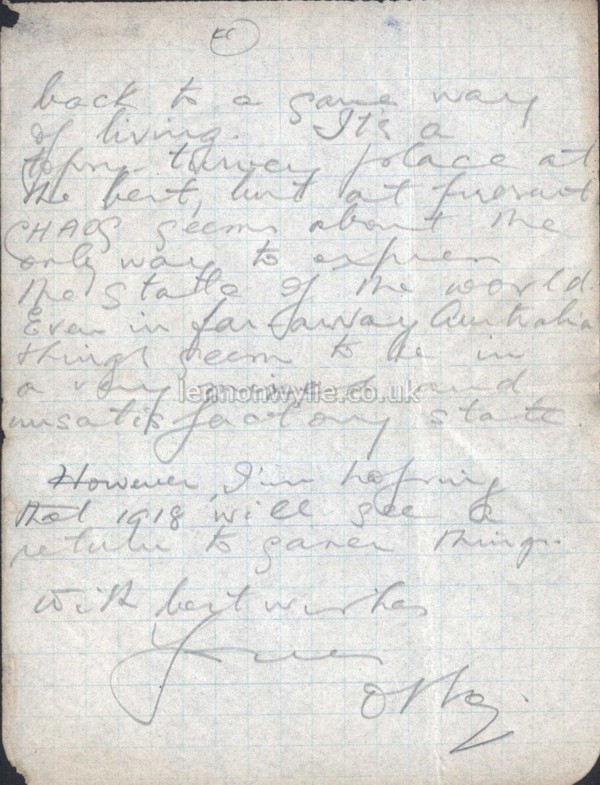 back to a sane way
of living. It's a
topsy-turvey place at
the best, but at present
CHAOS seems about the
only way to express
the state of the world.
Even in far-away Australia
things seem to be in
a very and
unsatisfactory state
lennonwylie.co.uk
However, I'm hoping
that 1918 will see a
return to saner things.
With best wishes
Yours